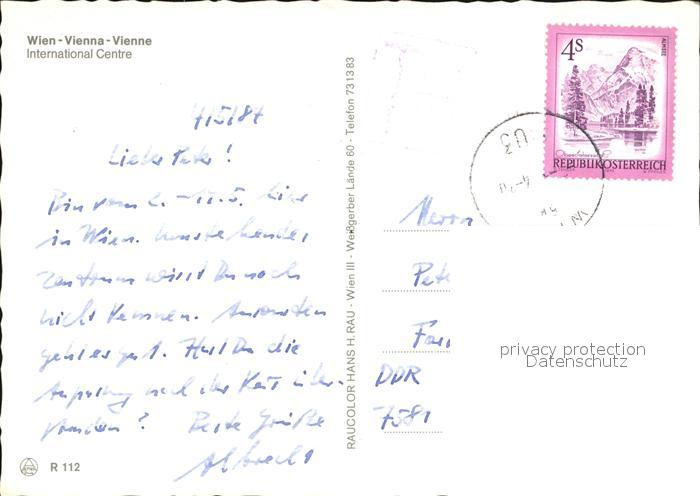 Wien - Vienna - Vienne
International Centre
4/5/87
Lieber Peter!
Bin vom 2. - 17.5. hier
in Wien. stehendes
Zentrum wirst Du noch
nicht kennen. Ansonsten
geht es gut. Hast Du die
nach der Kur über-
standen? Beste Grüße
Albrecht
R 112
RAUCOLOR HANS H. RAU - Wien III - Weißgerber Lände 60 - Telefon 73 13 83
4S
ALMSEE
REPUBLIK ÖSTERREICH
Herrn
Pete
DDR
7581
privacy protection
Datenschutz